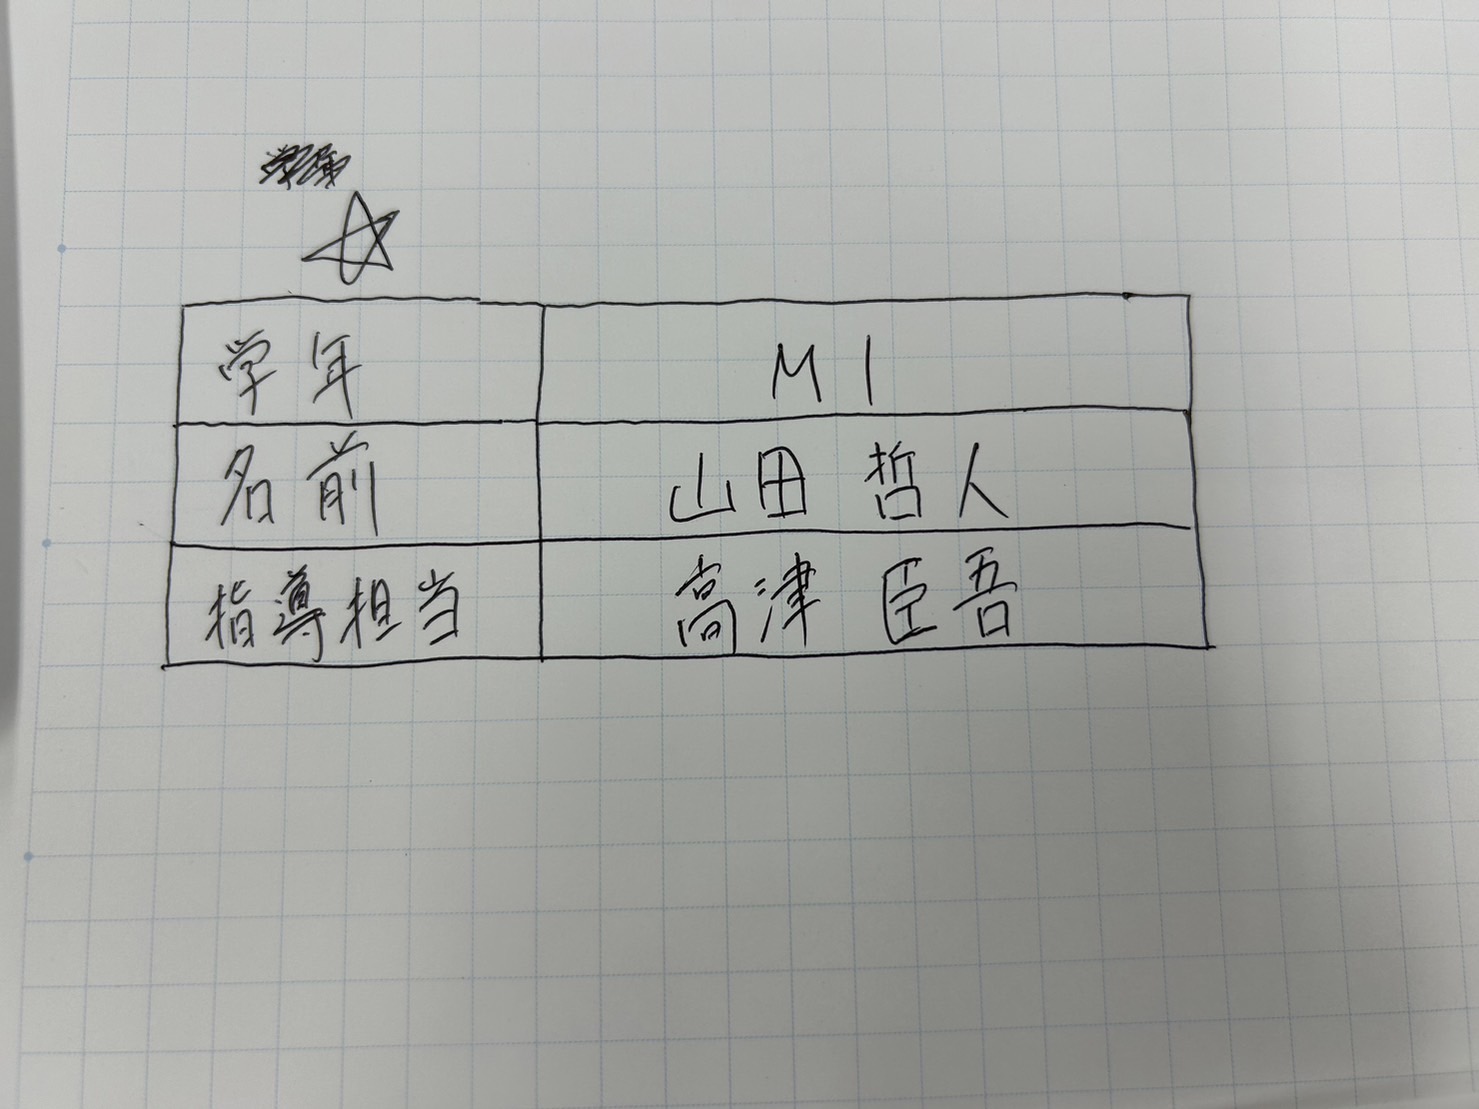 学年 M1
名前 山田 哲人
指導担当 高津 臣吾